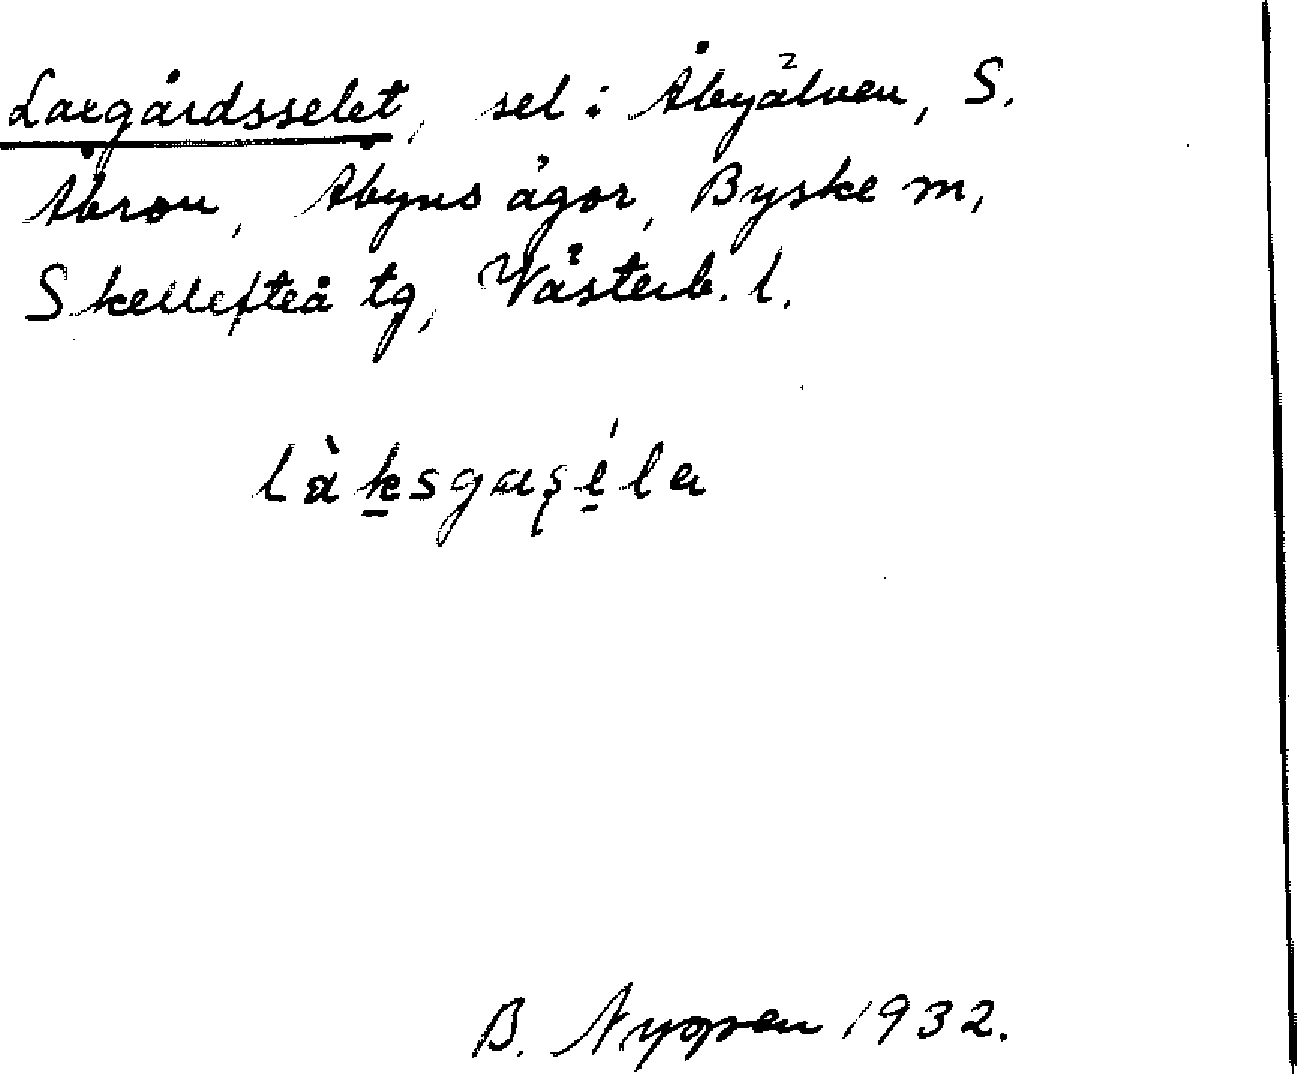 Laxgårdsselet, sel i Åbyälven, S.
Åbron, Åbyns ägor, Byske m,
Skellefteå tg, Västerb. l.
làksgaşéla
B. Nygren 1932.